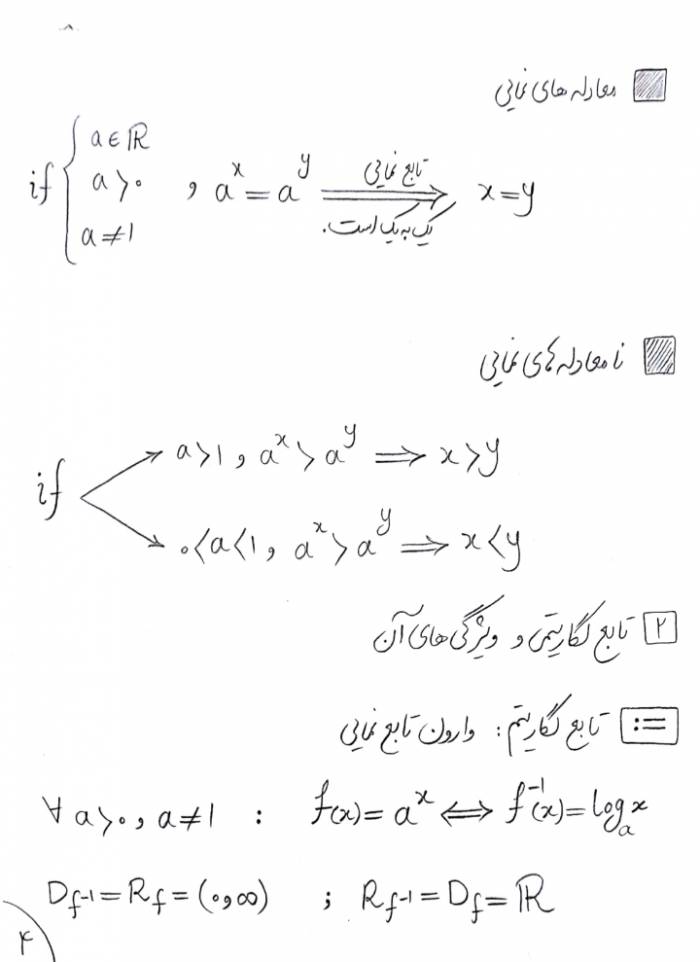 معادله های نمایی
if { a ∈ ℝ
a > ۰
a ≠ ۱ , a^x = a^y ⟹ (تابع نمایی یک به یک است.) x = y
نامعادله های نمایی
if → a > ۱ , a^x > a^y ⟹ x > y
→ ۰ < a < ۱ , a^x > a^y ⟹ x < y
۲ تابع لگاریتمی و ویژگی های آن
:= تابع لگاریتم : وارون تابع نمایی
∀ a > ۰ , a ≠ ۱ : f(x) = a^x ⟺ f^-1(x) = log_a x
D_f-1 = R_f = (۰ , ∞) ; R_f-1 = D_f = ℝ
۴